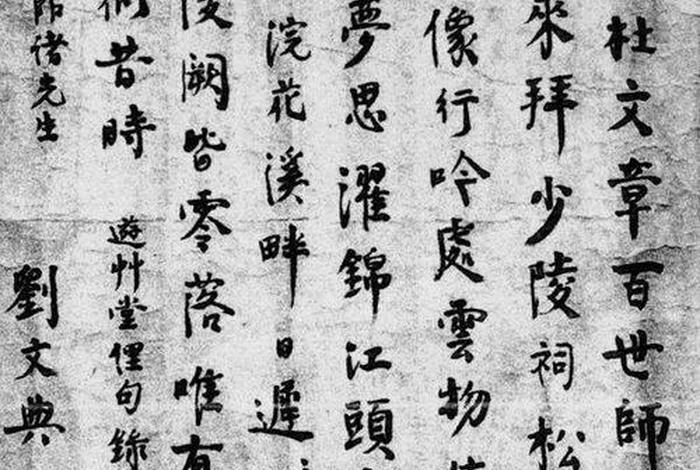 杜文章百世師
來拜少陵祠松
像行吟處雲物
夢思濯錦江頭
浣花溪畔日遲
陵闕皆零落唯有
昔時
遊艸堂俚句錄
渚先生
劉文典